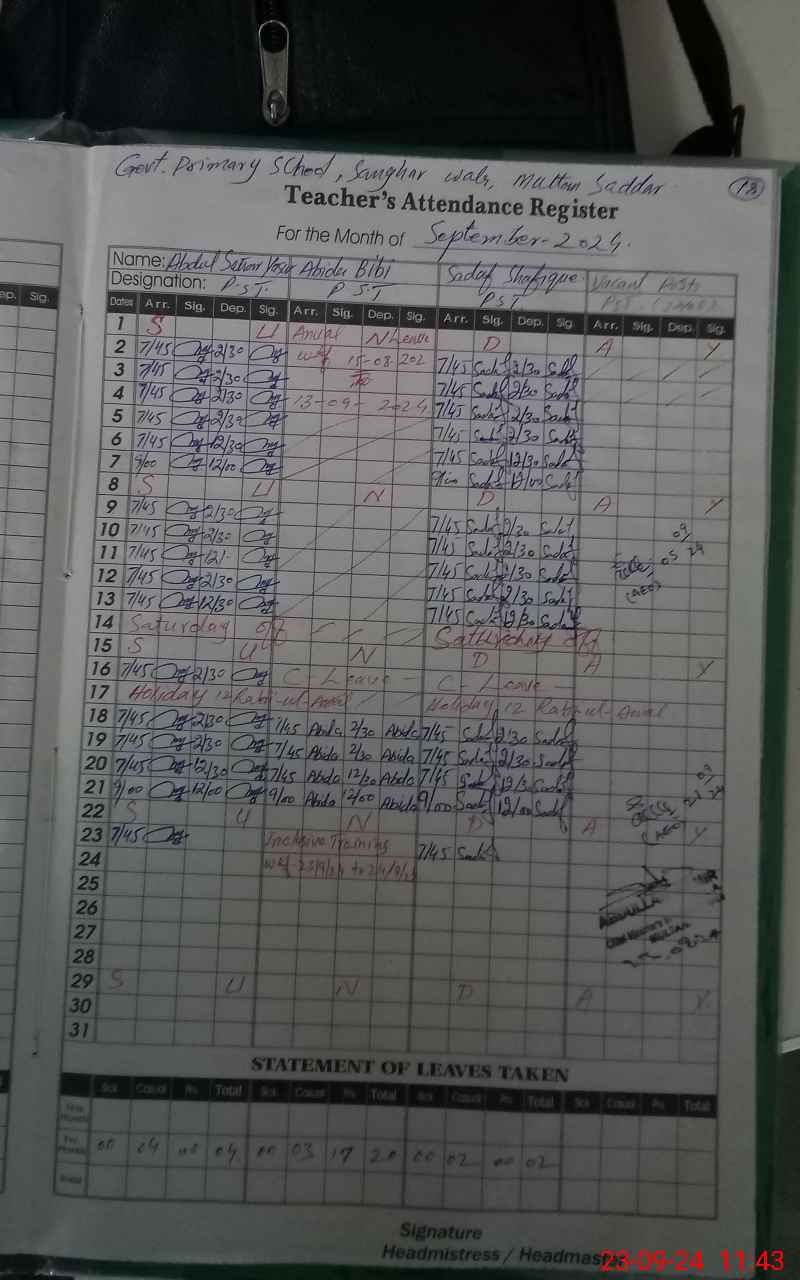 Govt. Primary School, Sanghar wala, Multan Saddar
18
Teacher's Attendance Register
For the Month of September-2024.
Name: Abdul Abida Bibi Sadaf Shafique Vacant Post
Designation: P.S.T. P S.T PST PST
ep. Sig. Dates Arr. Sig. Dep. Sig. Arr. Sig. Dep. Sig. Arr. Sig. Dep. Sig. Arr. Sig. Dep. Sig.
1 S U N D A Y
2 7/45 2/30 Leave 7/45 Sadaf 2/30 Sadaf
3 7/45 2/30 wef 15-08-202 7/45 Sadaf 2/30 Sadaf
4 7/45 2/30 To 7/45 Sadaf 2/30 Sadaf
5 7/45 2/30 13-09-2024 7/45 Sadaf 2/30 Sadaf
6 7/45 12/30 7/45 Sadaf 12/30 Sadaf
7 9/00 12/00 9/00 Sadaf 12/00 Sadaf
8 S U N D A Y
9 7/45 2/30 7/45 Sadaf 2/30 Sadaf
10 7/45 2/30 7/45 Sadaf 2/30 Sadaf
11 7/45 7/45 Sadaf 2/30 Sadaf
12 7/45 2/30 7/45 Sadaf 2/30 Sadaf (AEO)
13 7/45 12/30 7/45 Sadaf 12/30 Sadaf
14 Saturday off Saturday off
15 S U N D A Y
16 7/45 2/30 C-Leave - C-Leave -
17 Holiday 12 Rabi-ul-Awal Holiday 12 Rabi-ul-Awal
18 7/45 2/30 7/45 Abida 2/30 Abida 7/45 Sadaf 2/30 Sadaf
19 7/45 2/30 7/45 Abida 2/30 Abida 7/45 Sadaf 2/30 Sadaf
20 7/45 12/30 7/45 Abida 12/30 Abida 7/45 Sadaf 12/30 Sadaf
21 9/00 12/00 9/00 Abida 12/00 Abida 9/00 Sadaf 12/00 Sadaf
22 S U N D A Y
(AEO)
23 7/45 Training 7/45 Sadaf
24 wef 23/9/24 to
25
26
27
28
29 S U N D A Y
30
31
STATEMENT OF LEAVES TAKEN
Sick Casual Pri. Total Sick Casual Pri. Total Sick Casual Pri. Total Sick Casual Pri. Total
00 04 00 04 00 03 17 20 00 02 00 02
Signature
Headmistress / Headmaster
23-09-24 11:43